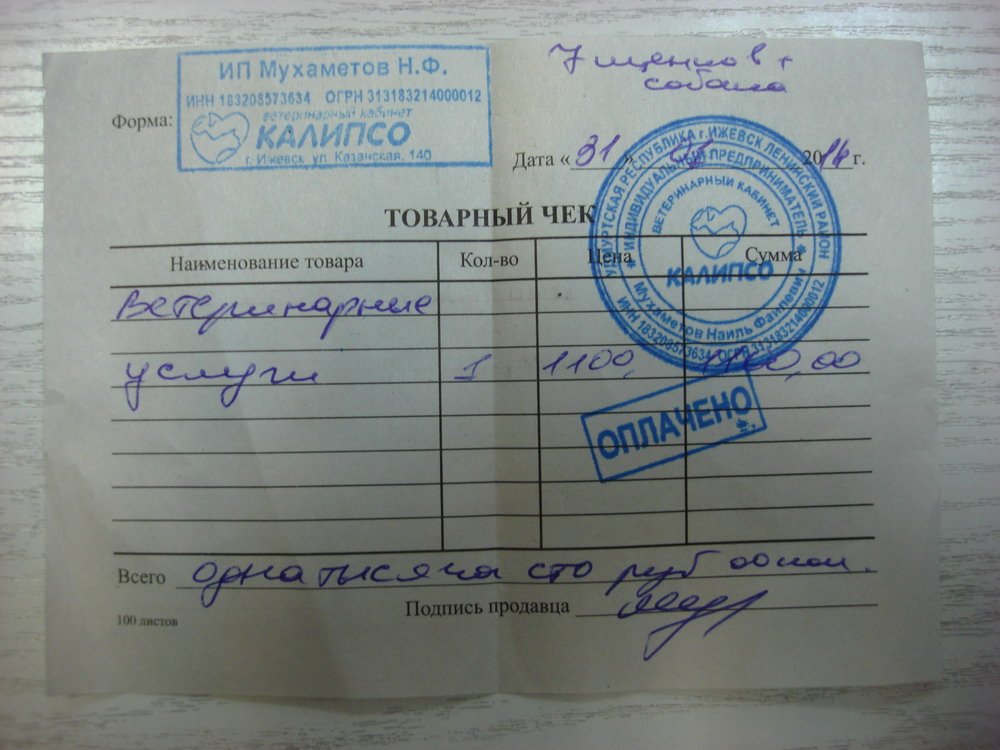 ИП Мухаметов Н.Ф.
ИНН 183208573634 ОГРН 313183214000012
ветеринарный кабинет
КАЛИПСО
г. Ижевск ул. Казанская, 140
7 щенков +
собака
Форма:
Дата « 31 » 2014 г.
УДМУРТСКАЯ РЕСПУБЛИКА г. ИЖЕВСК ЛЕНИНСКИЙ РАЙОН
* ИНДИВИДУАЛЬНЫЙ ПРЕДПРИНИМАТЕЛЬ *
ВЕТЕРИНАРНЫЙ КАБИНЕТ
КАЛИПСО
Мухаметов Наиль Фаилевич
ИНН 183208573634 * ОГРН 313183214000012
ТОВАРНЫЙ ЧЕК
Наименование товара Кол-во Цена Сумма
Ветеринарные
услуги 1 1100, 1100,00
ОПЛАЧЕНО
Всего одна тысяча сто руб 00 коп.
Подпись продавца
100 листов